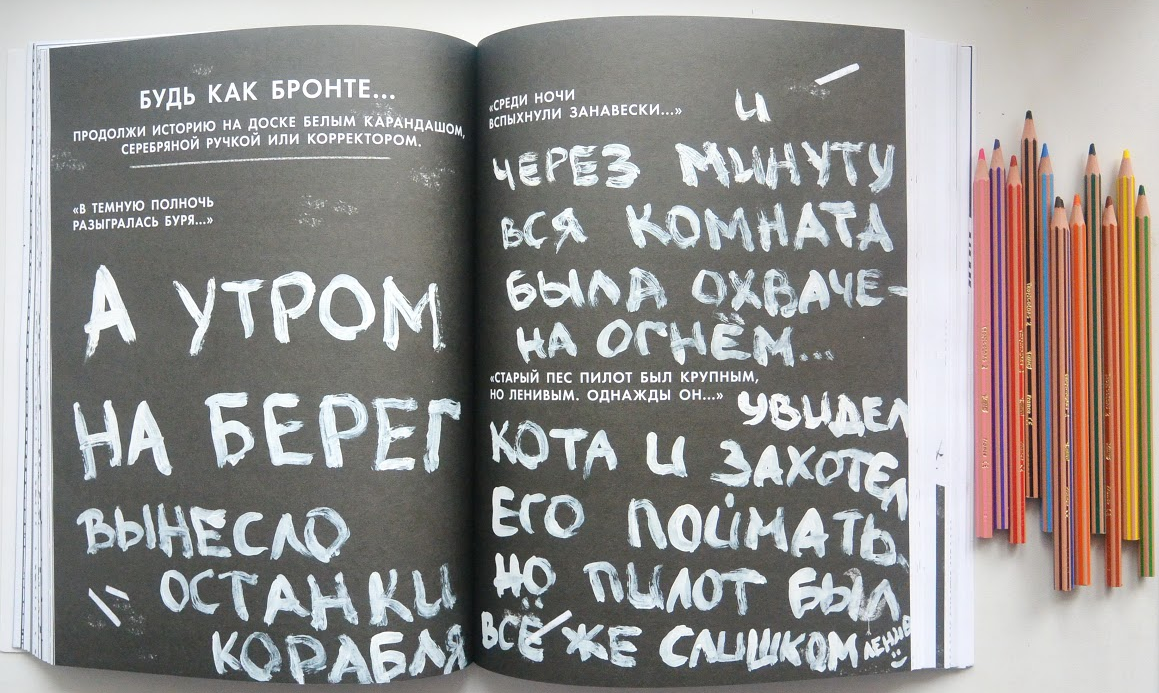 БУДЬ КАК БРОНТЕ...
ПРОДОЛЖИ ИСТОРИЮ НА ДОСКЕ БЕЛЫМ КАРАНДАШОМ,
СЕРЕБРЯНОЙ РУЧКОЙ ИЛИ КОРРЕКТОРОМ.
«В ТЕМНУЮ ПОЛНОЧЬ
РАЗЫГРАЛАСЬ БУРЯ...»
А УТРОМ
НА БЕРЕГ
ВЫНЕСЛО
ОСТАНКИ
КОРАБЛЯ
«СРЕДИ НОЧИ
ВСПЫХНУЛИ ЗАНАВЕСКИ...»
И
ЧЕРЕЗ МИНУТУ
ВСЯ КОМНАТА
БЫЛА ОХВАЧЕ-
НА ОГНЁМ...
«СТАРЫЙ ПЕС ПИЛОТ БЫЛ КРУПНЫМ,
НО ЛЕНИВЫМ. ОДНАЖДЫ ОН...»
УВИДЕЛ
КОТА И ЗАХОТЕЛ
ЕГО ПОЙМАТЬ,
НО ПИЛОТ БЫЛ
ВСЁ ЖЕ СЛИШКОМ ЛЕНИВ